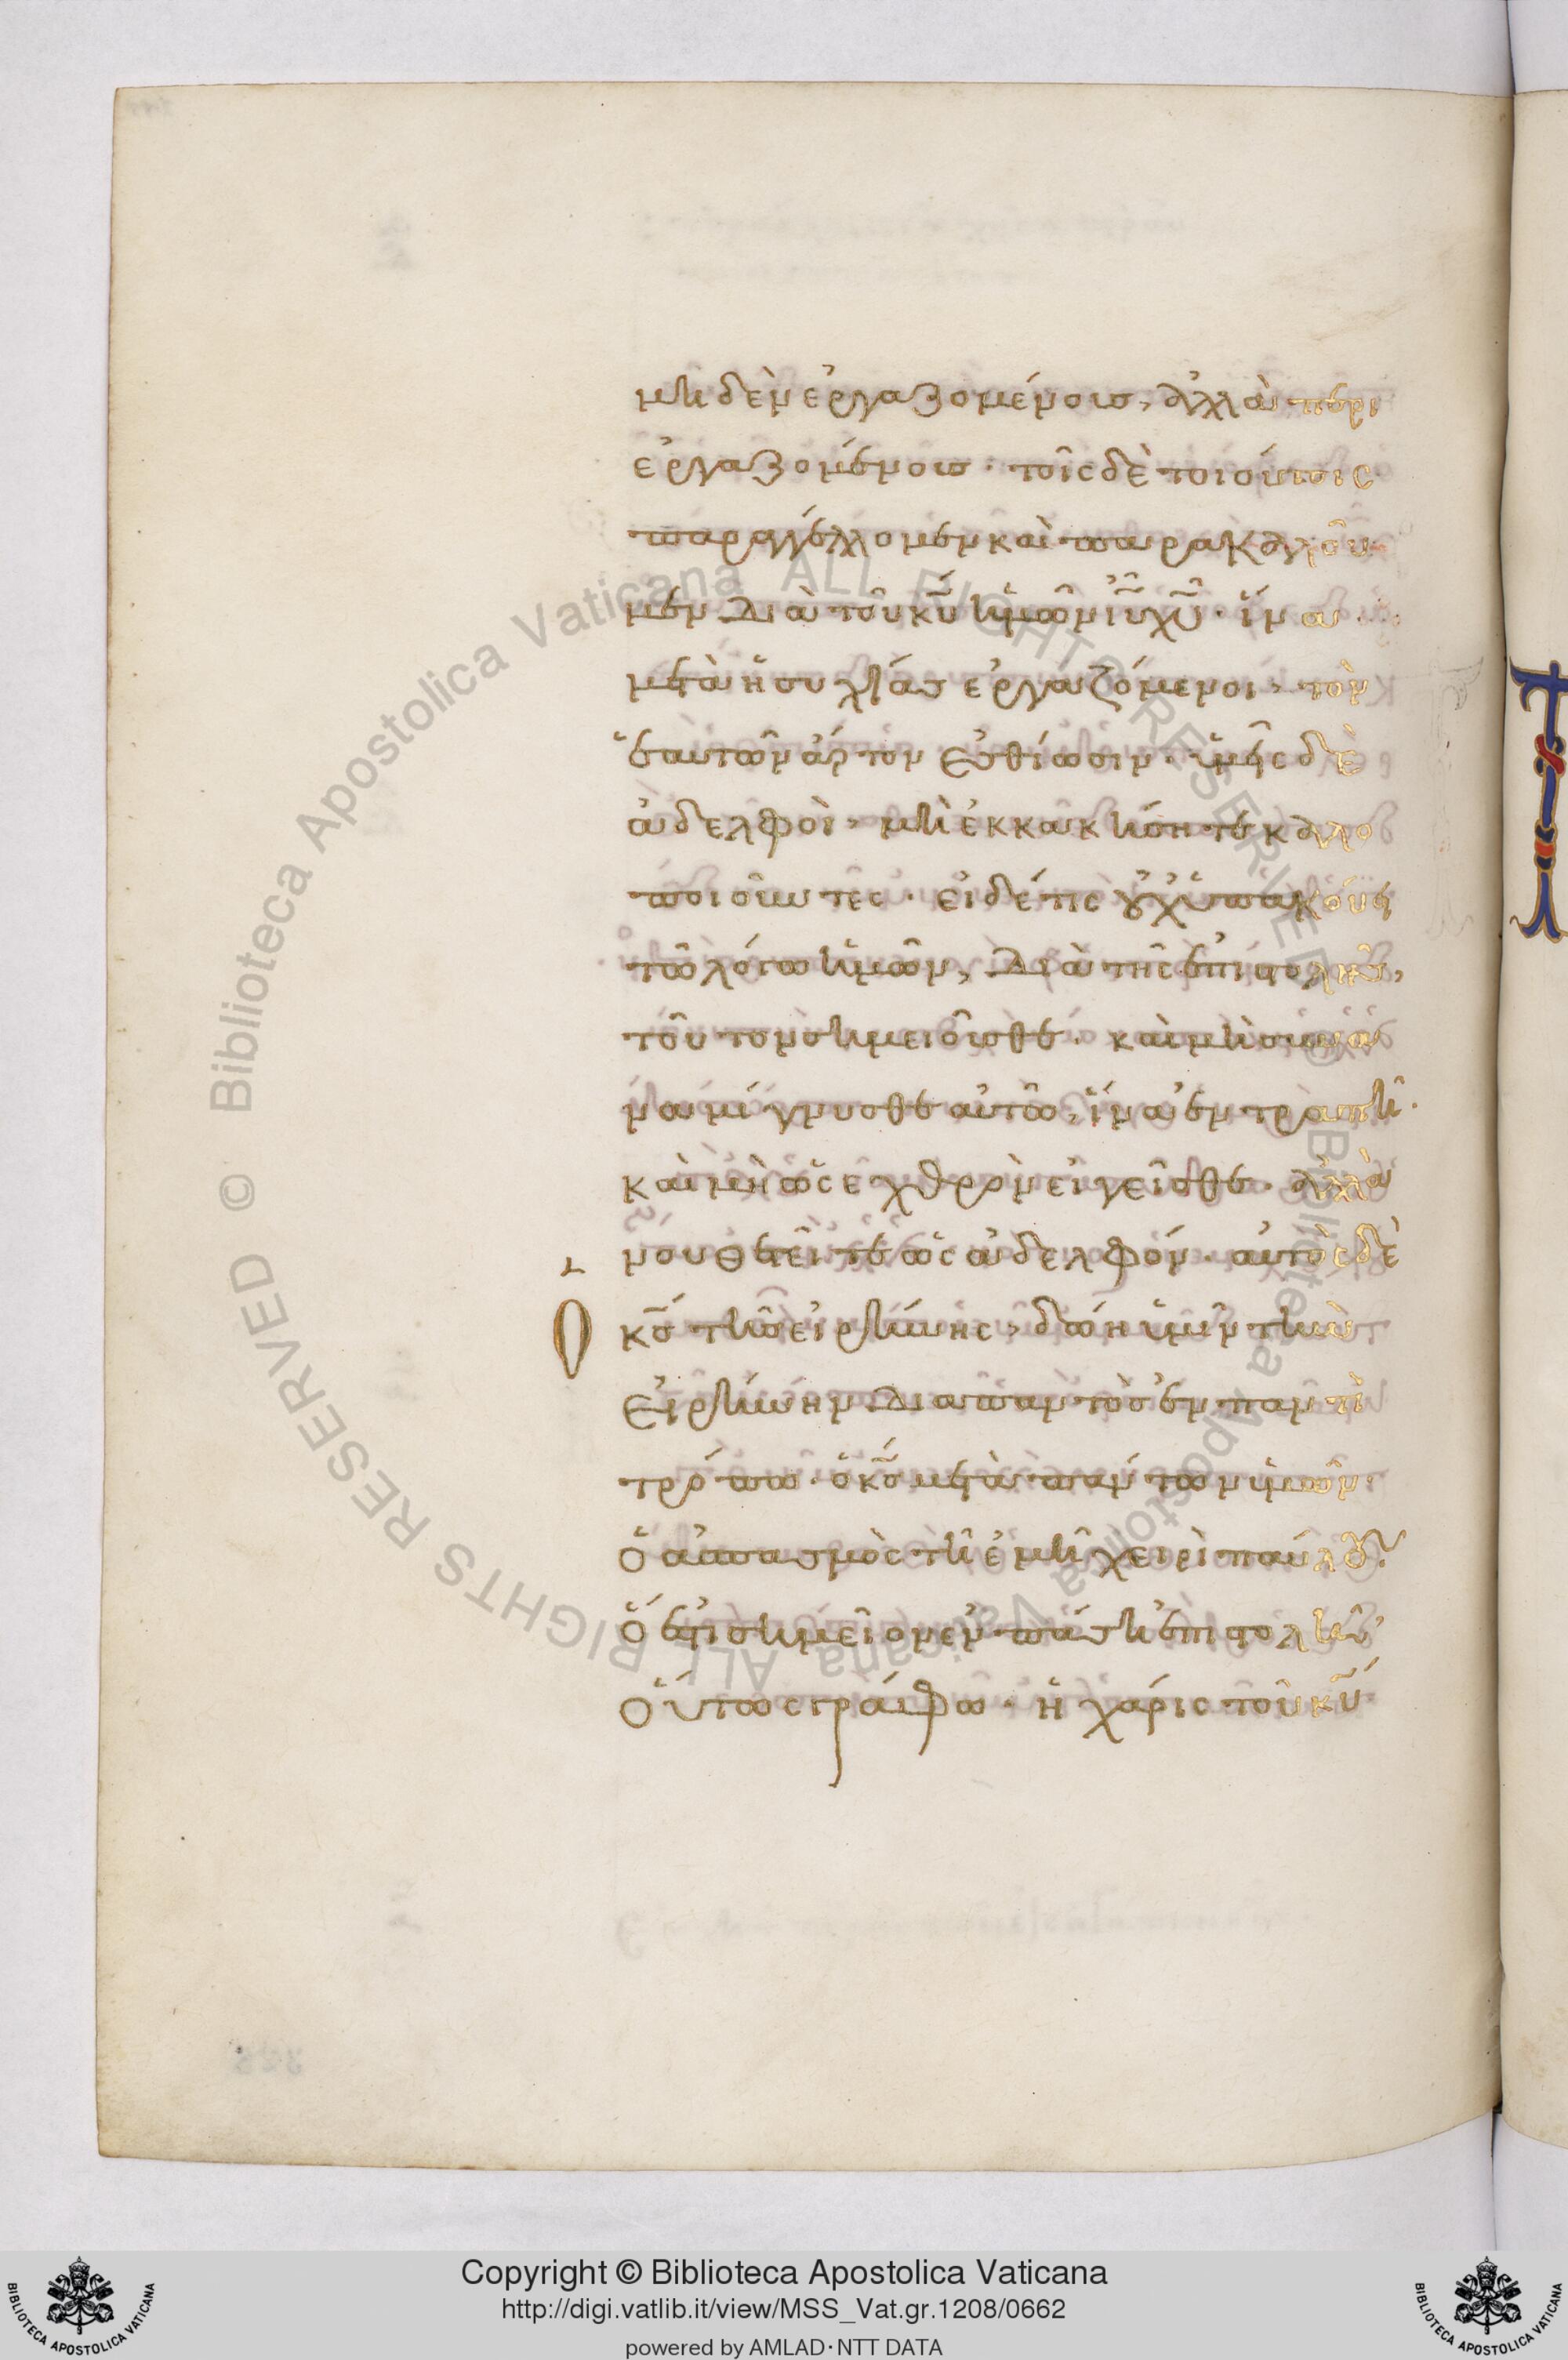 μηδὲν ἐργαζομένοις, ἀλλὰ περι
εργαζομένοις· τοῖς δὲ τοιούτοις
παραγγέλλομεν καὶ παρακαλοῦ
μεν διὰ τοῦ κ̅υ̅ ἡμῶν ι̅υ̅ χ̅υ̅· ἵνα
μετὰ ἡσυχίας ἐργαζόμενοι, τὸν
ἑαυτῶν ἄρτον ἐσθίωσιν· ὑμεῖς δὲ
ἀδελφοὶ, μὴ ἐκκακήσητε καλο
ποιοῦντες· εἰ δέ τις οὐχ ὑπακούει
τῶ λόγω ἡμῶν, διὰ τῆς ἐπιστολῆς,
τοῦτον σημειοῦσθε· καὶ μὴ συνα
ναμίγνυσθε αὐτῶ, ἵνα ἐντραπῆ·
καὶ μὴ ὡς εχθρὸν εἱγεῖσθε· ἀλλὰ
νουθετεῖτε ὡς ἀδελφόν· αὐτὸς δὲ
Ο κ̅ς̅ τῆς εἰρήνης, δώη ὑμῖν τὴν
εἰρήνην διαπαντὸς ἐν παντὶ
τρόπω· ὁ κ̅ς̅ μετὰ πάντων ὑμῶν·
ὁ ἀσπασμὸς τῆ ἐμῆ χειρὶ παύλου·
ὅ ἐστι σημεῖον ἐν πάση ἐπιστολῆ·
οὕτως γράφω· ἡ χάρις τοῦ κ̅υ̅
Copyright © Biblioteca Apostolica Vaticana
http://digi.vatlib.it/view/MSS_Vat.gr.1208/0662
powered by AMLAD·NTT DATA
BIBLIOTECA APOSTOLICA VATICANA
BIBLIOTECA APOSTOLICA VATICANA
© Biblioteca Apostolica Vaticana ALL RIGHTS RESERVED
© Biblioteca Apostolica Vaticana ALL RIGHTS RESERVED